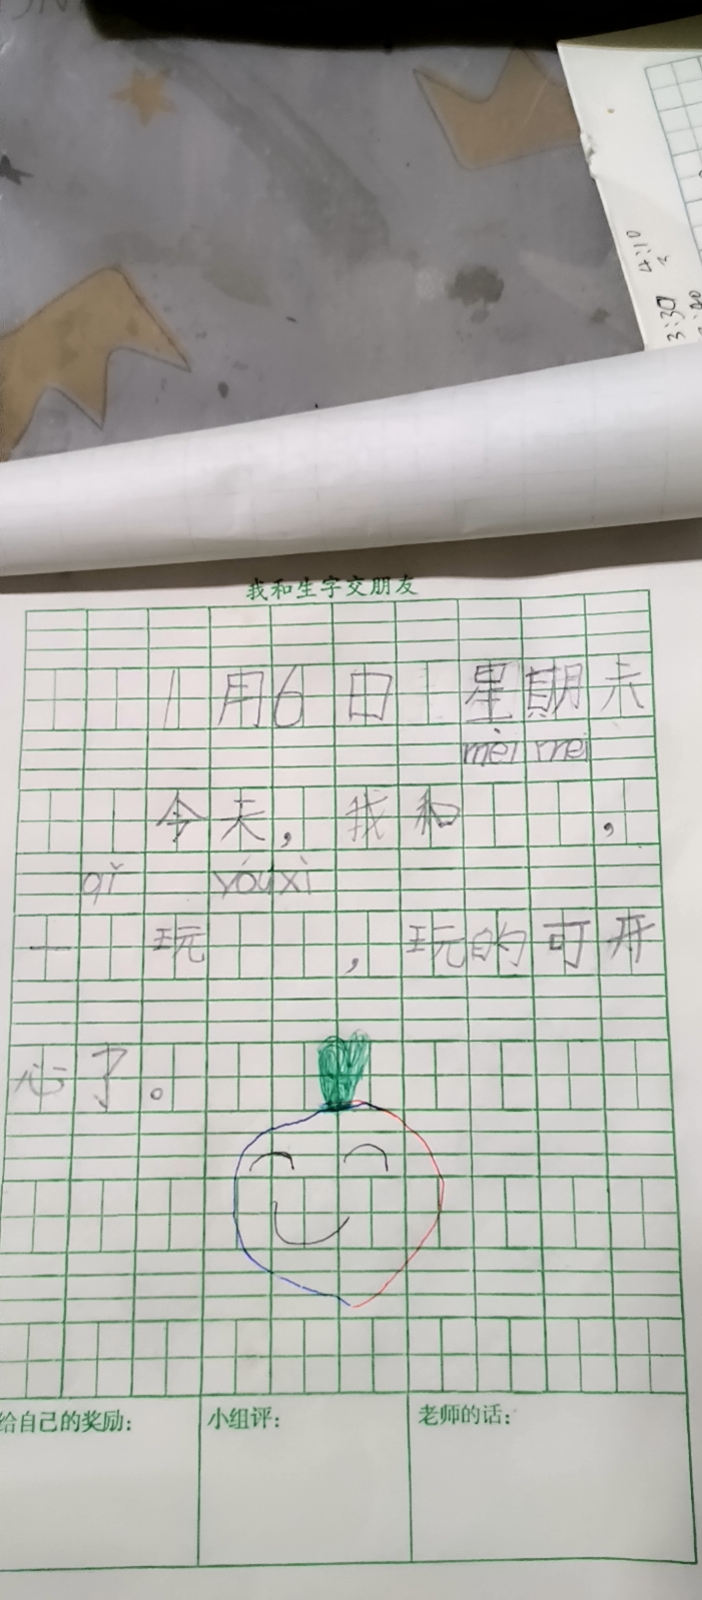 4:10
3:30
我和生字交朋友
1月6日 星期六
mèi mei
今天，我和 ，
qǐ yóu xì
一 玩 ，玩的可开
心了。
给自己的奖励：
小组评：
老师的话：